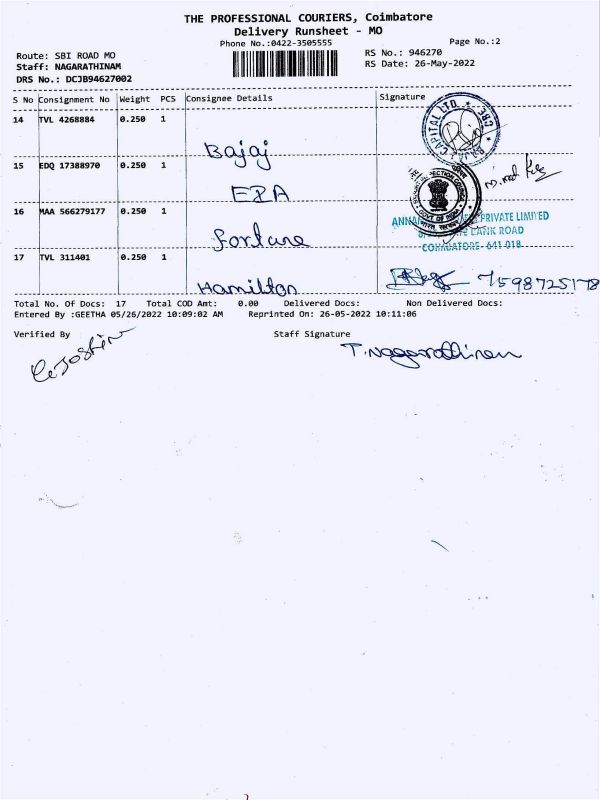 THE PROFESSIONAL COURIERS, Coimbatore
Delivery Runsheet - MO
Phone No.:0422-3505555
Page No.:2
Route: SBI ROAD MO
RS No.: 946270
Staff: NAGARATHINAM
RS Date: 26-May-2022
DRS No.: DCJB94627002
S No Consignment No Weight PCS Consignee Details Signature
14 TVL 4268884 0.250 1
CAPITAL LTD. ★ CBE
Bajaj
15 EDQ 17388970 0.250 1
EIA
GOVT. OF INDIA
16 MAA 566279177 0.250 1
PRIVATE LIMITED
BANK ROAD
fortune
COIMBATORE- 641 018
17 TVL 311401 0.250 1
7598725178
Hamilton
Total No. Of Docs: 17 Total COD Amt: 0.00 Delivered Docs: Non Delivered Docs:
Entered By :GEETHA 05/26/2022 10:09:02 AM Reprinted On: 26-05-2022 10:11:06
Verified By Staff Signature
T.Nagarathinam